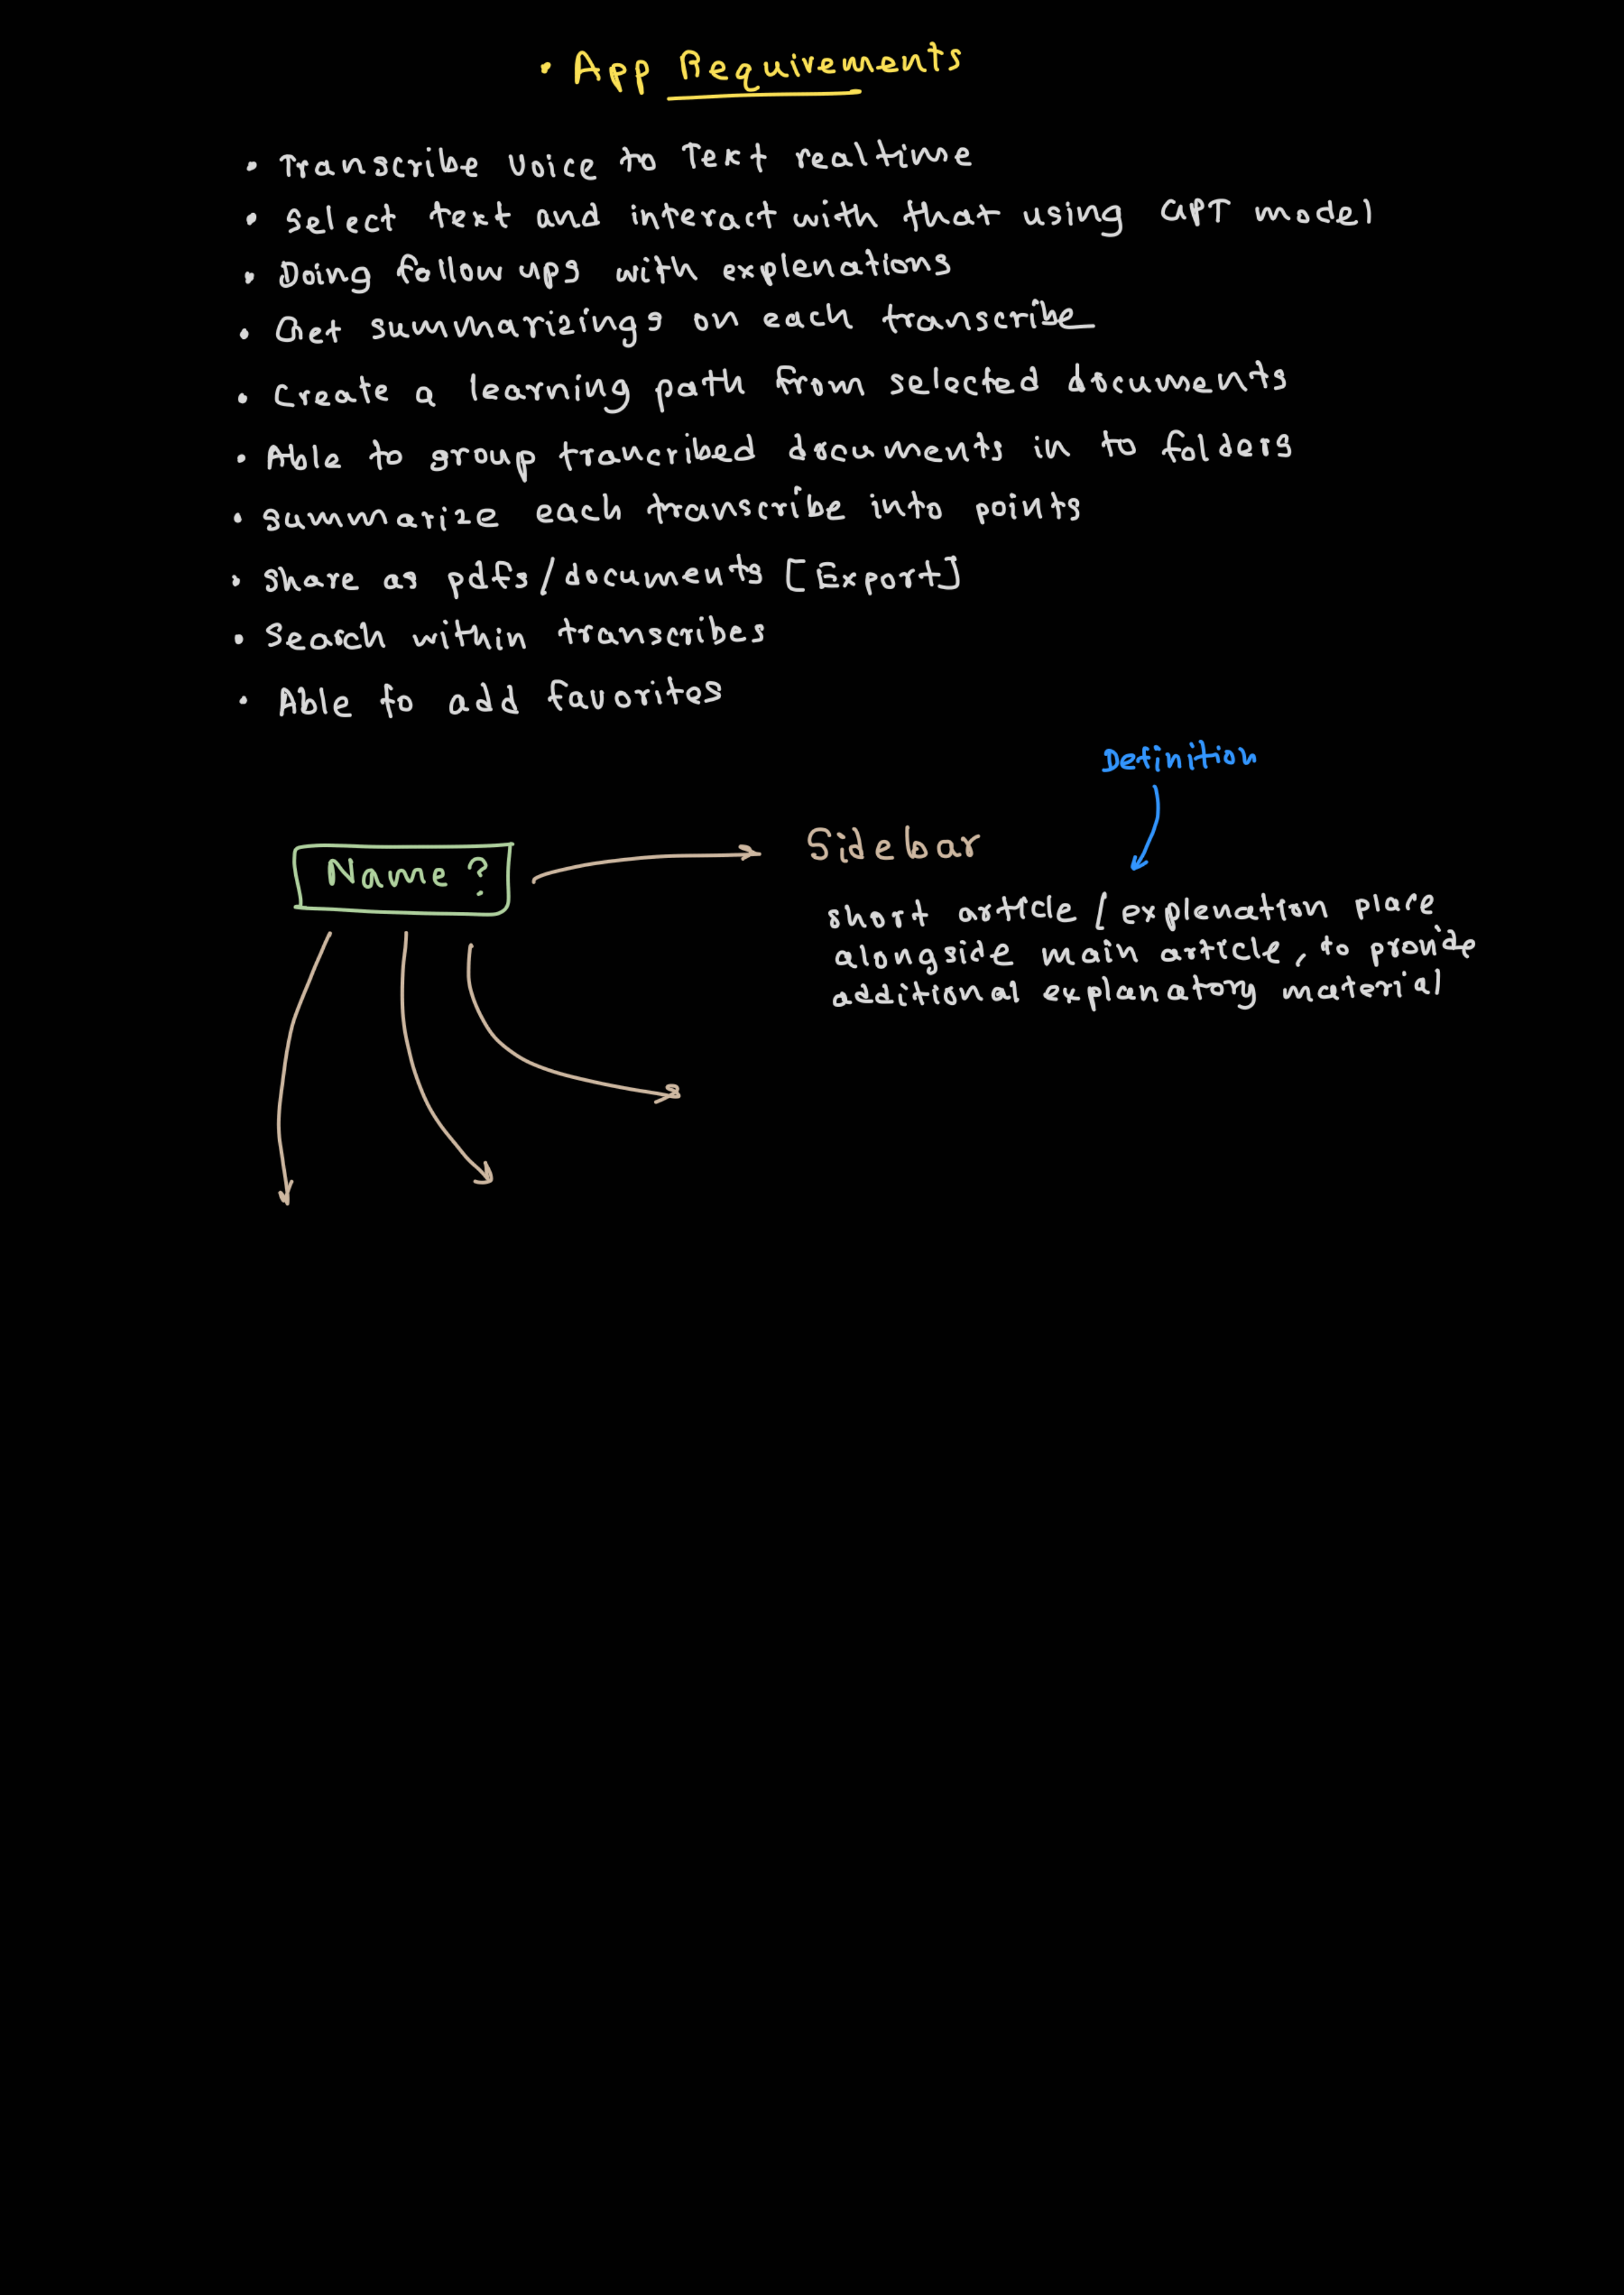 • App Requirements
• Transcribe Voice to Text realtime
• Select text and interact with that using GPT model
• Doing follow ups with explenations
• Get summarizings on each transcribe
• Create a learning path from selected documents
• Able to group trancribed documents in to folders
• Summarize each transcribe into points
• Share as pdfs/documents [Export]
• Search within transcribes
• Able to add favorites
Definition
Name ?
Sidebar
short article / explenation place
alongside main article, to provide
additional explanatory material